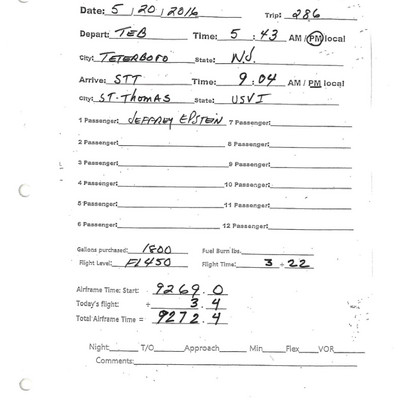 Date: 5 / 20 / 2016 Trip: 286
Depart: TEB Time: 5 : 43 AM / PM local
City: TETERBORO State: NJ.
Arrive: STT Time: 9 : 04 AM / PM local
City: ST. THOMAS State: USVI
1 Passenger: JEFFREY EPSTEIN 7 Passenger:
2 Passenger: 8 Passenger:
3 Passenger: 9 Passenger:
4 Passenger: 10 Passenger:
5 Passenger: 11 Passenger:
6 Passenger: 12 Passenger:
Gallons purchased: 1800 Fuel Burn lbs.
Flight Level: FL450 Flight Time: 3 + 22
Airframe Time: Start: 9269.0
Today's flight: + 3.4
Total Airframe Time = 9272.4
Night: T/O Approach Min Flex VOR
Comments: